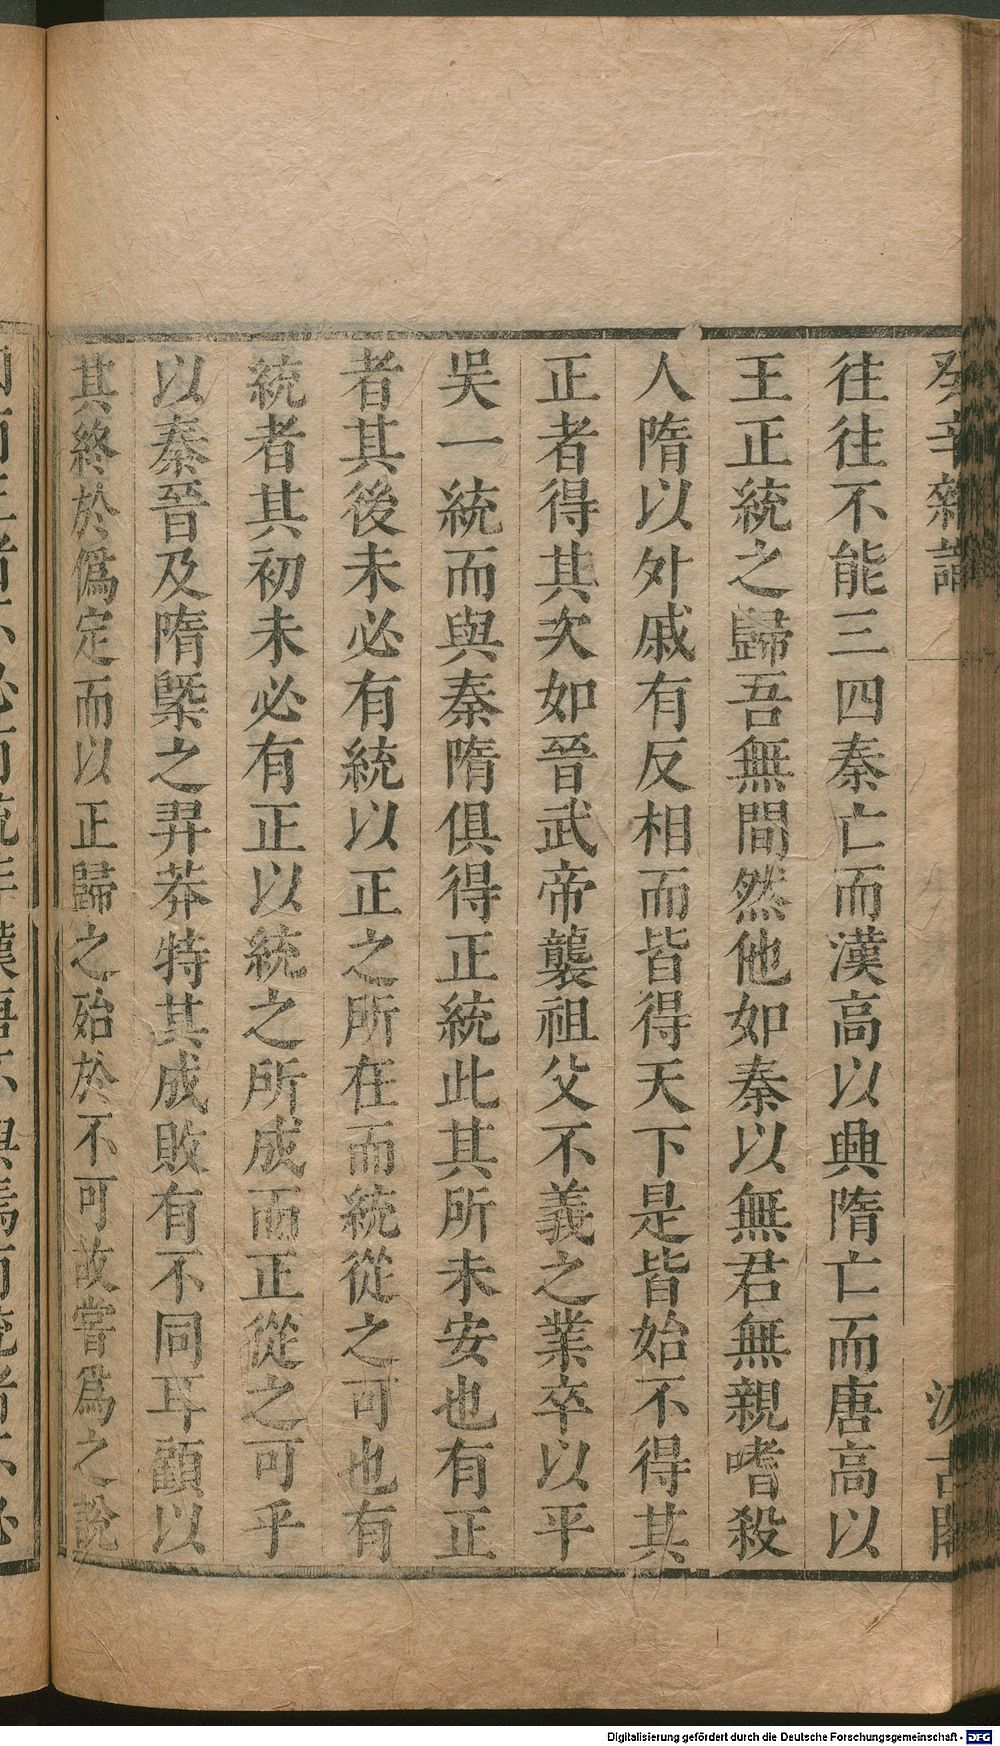 癸辛雜識
汲古閣
往往不能三四秦亡而漢高以興隋亡而唐高以
王正統之歸吾無間然他如秦以無君無親嗜殺
人隋以外戚有反相而皆得天下是皆始不得其
正者得其次如晉武帝襲祖父不義之業卒以平
吳一統而與秦隋俱得正統此其所未安也有正
者其後未必有統以正之所在而統從之可也有
統者其初未必有正以統之所成而正從之可乎
以秦晉及隋槩之羿莽特其成敗有不同耳顧以
其終於僞定而以正歸之殆於不可故嘗爲之說
Digitalisierung gefördert durch die Deutsche Forschungsgemeinschaft - DFG